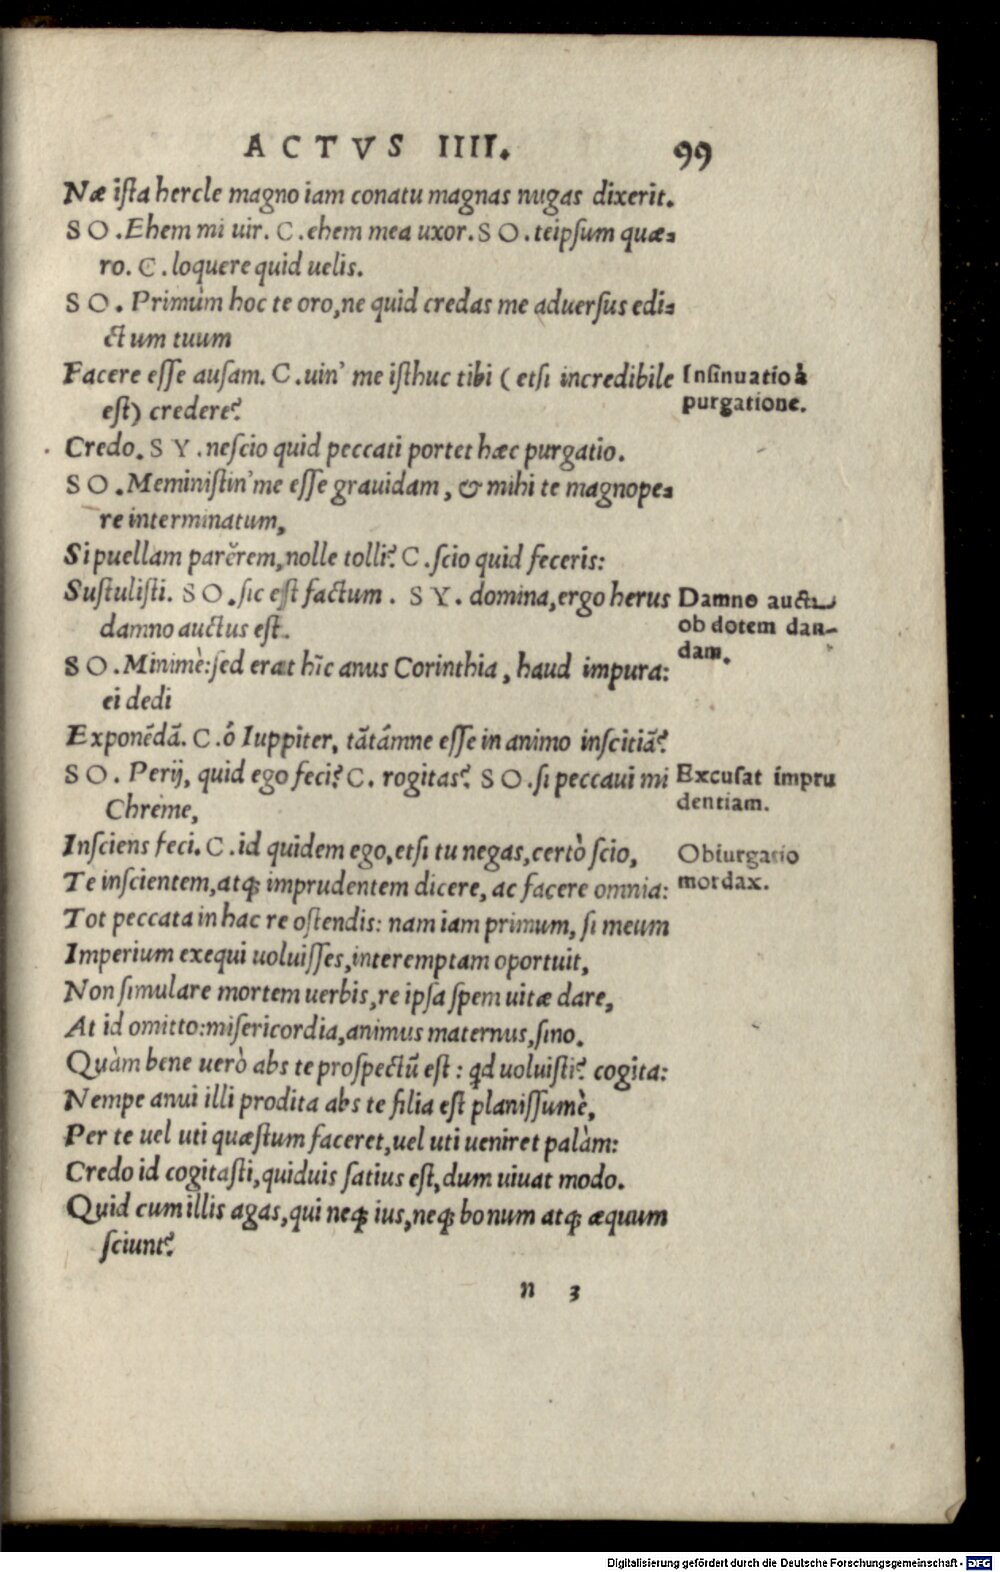 ACTVS IIII. 99
Næ iſta hercle magno iam conatu magnas nugas dixerit.
SO. Ehem mi uir. C. ehem mea uxor. SO. teipſum quæ-
ro. C. loquere quid uelis.
SO. Primùm hoc te oro, ne quid credas me aduerſus edi-
ctum tuum
Facere eſſe auſam. C. uin' me iſthuc tibi (etſi incredibile
Inſinuatio à
eſt) credere?
purgatione.
Credo. SY. neſcio quid peccati portet hæc purgatio.
SO. Meminiſtin' me eſſe grauidam, & mihi te magnope-
re interminatum,
Si puellam parĕrem, nolle tolli? C. ſcio quid feceris:
Suſtuliſti. SO. ſic eſt factum. SY. domina, ergo herus
Damno auctus
damno auctus eſt.
ob dotem dan-
dam.
SO. Minimè: ſed erat hîc anus Corinthia, haud impura:
ei dedi
Exponēdā. C. ô Iuppiter, tātâmne eſſe in animo inſcitiā?
SO. Perij, quid ego feci? C. rogitas? SO. ſi peccaui mi
Excuſat impru
Chreme,
dentiam.
Inſciens feci. C. id quidem ego, etſi tu negas, certò ſcio,
Obiurgatio
Te inſcientem, atq; imprudentem dicere, ac facere omnia:
mordax.
Tot peccata in hac re oſtendis: nam iam primum, ſi meum
Imperium exequi uoluiſſes, interemptam oportuit,
Non ſimulare mortem uerbis, re ipſa ſpem uitæ dare,
At id omitto: miſericordia, animus maternus, ſino.
Quàm bene uerò abs te proſpectū eſt: qd uoluiſti? cogita:
Nempe anui illi prodita abs te filia eſt planiſſumè,
Per te uel uti quæſtum faceret, uel uti ueniret palàm:
Credo id cogitaſti, quiduis ſatius eſt, dum uiuat modo.
Quid cum illis agas, qui neq; ius, neq; bonum atq; æquum
ſciunt?
n 3
Digitalisierung gefördert durch die Deutsche Forschungsgemeinschaft - DFG